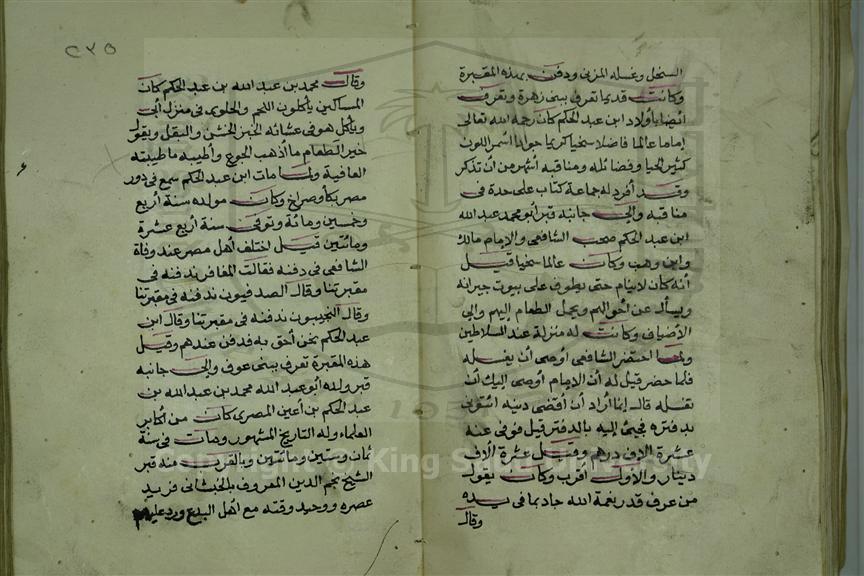 السنحل وغسله المزنى ودفن بهذه المقبرة
وكانت قديما تعرف ببنى زهرة وتعرف
ايضا باولاد ابن عبد الحكم كان رحمه الله تعالى
إماما عالما فاضلا سخيا كريما جوادا اسمر اللون
كثير الحيا وفضائله ومناقبه اشهر من أن تذكر
وقد أفرد له جماعة كتاب على حدة فى
مناقبه والى جانبه قبر أبو محمد عبد الله
ابن عبد الحكم صحب الشافعى والإمام مالك
وابن وهب وكان عالما سخيا قيل
أنه كان لاينام حتى يطوف على بيوت جيرانه
ويسأله عن أحوالهم ويحمل الطعام إليهم والى
الأضياف وكانت له منزلة عند السلاطين
ولما احتضر الشافعى أوصى أن يغسله
فلما حضر قيل له أن الإمام أوصى إليك أن
تغسله قال إنما أراد أن أقضى دينه ائتونى
بدفتره فجئ إليه بالدفتر قيل فوفى عنه
عشرة الاف درهم وقيل عشرة الاف
دينار والأول أقرب وكان يقول
من عرف قدر نعمة الله جاد بما فى يده
وقال
٥٣٥
وقال محمد بن عبد الله بن عبد الحكم كان
المساكين يأكلون اللحم والحلوى فى منزل أبى
ويأكل هو فى عشائه الخبز الخشن والبقل ويقول
خير الطعام ما أذهب الجوع وأطيبه ما طيبته
العافية ولما مات ابن عبد الحكم سمع فى دور
مصر بكاء وصراخ وكان مولده سنة أربع
وخمسين ومائة وتوفى سنة أربع عشرة
ومائتين قيل اختلف أهل مصر عند وفاة
الشافعى فى دفنه فقالت المعافر ندفنه فى
مقبرتنا وقال الصدفيون ندفنه فى مقبرتنا
وقال التجيبيون ندفنه فى مقبرتنا وقال ابن
عبد الحكم نحن أحق به فدفن عندهم وقيل
هذه المقبرة تعرف ببنى عوف والى جانبه
قبر ولده أبو عبد الله محمد بن عبد الله بن
عبد الحكم بن أعين المصرى كان من أكابر
العلماء وله التاريخ المشهور ومات فى سنة
ثمان وستين ومائتين وبالقرب منه قبر
الشيخ نجم الدين المعروف بالخبشانى فريد
عصره ووحيد وقته مع أهل البدع ورد عليهم
Copyright © King Saud University